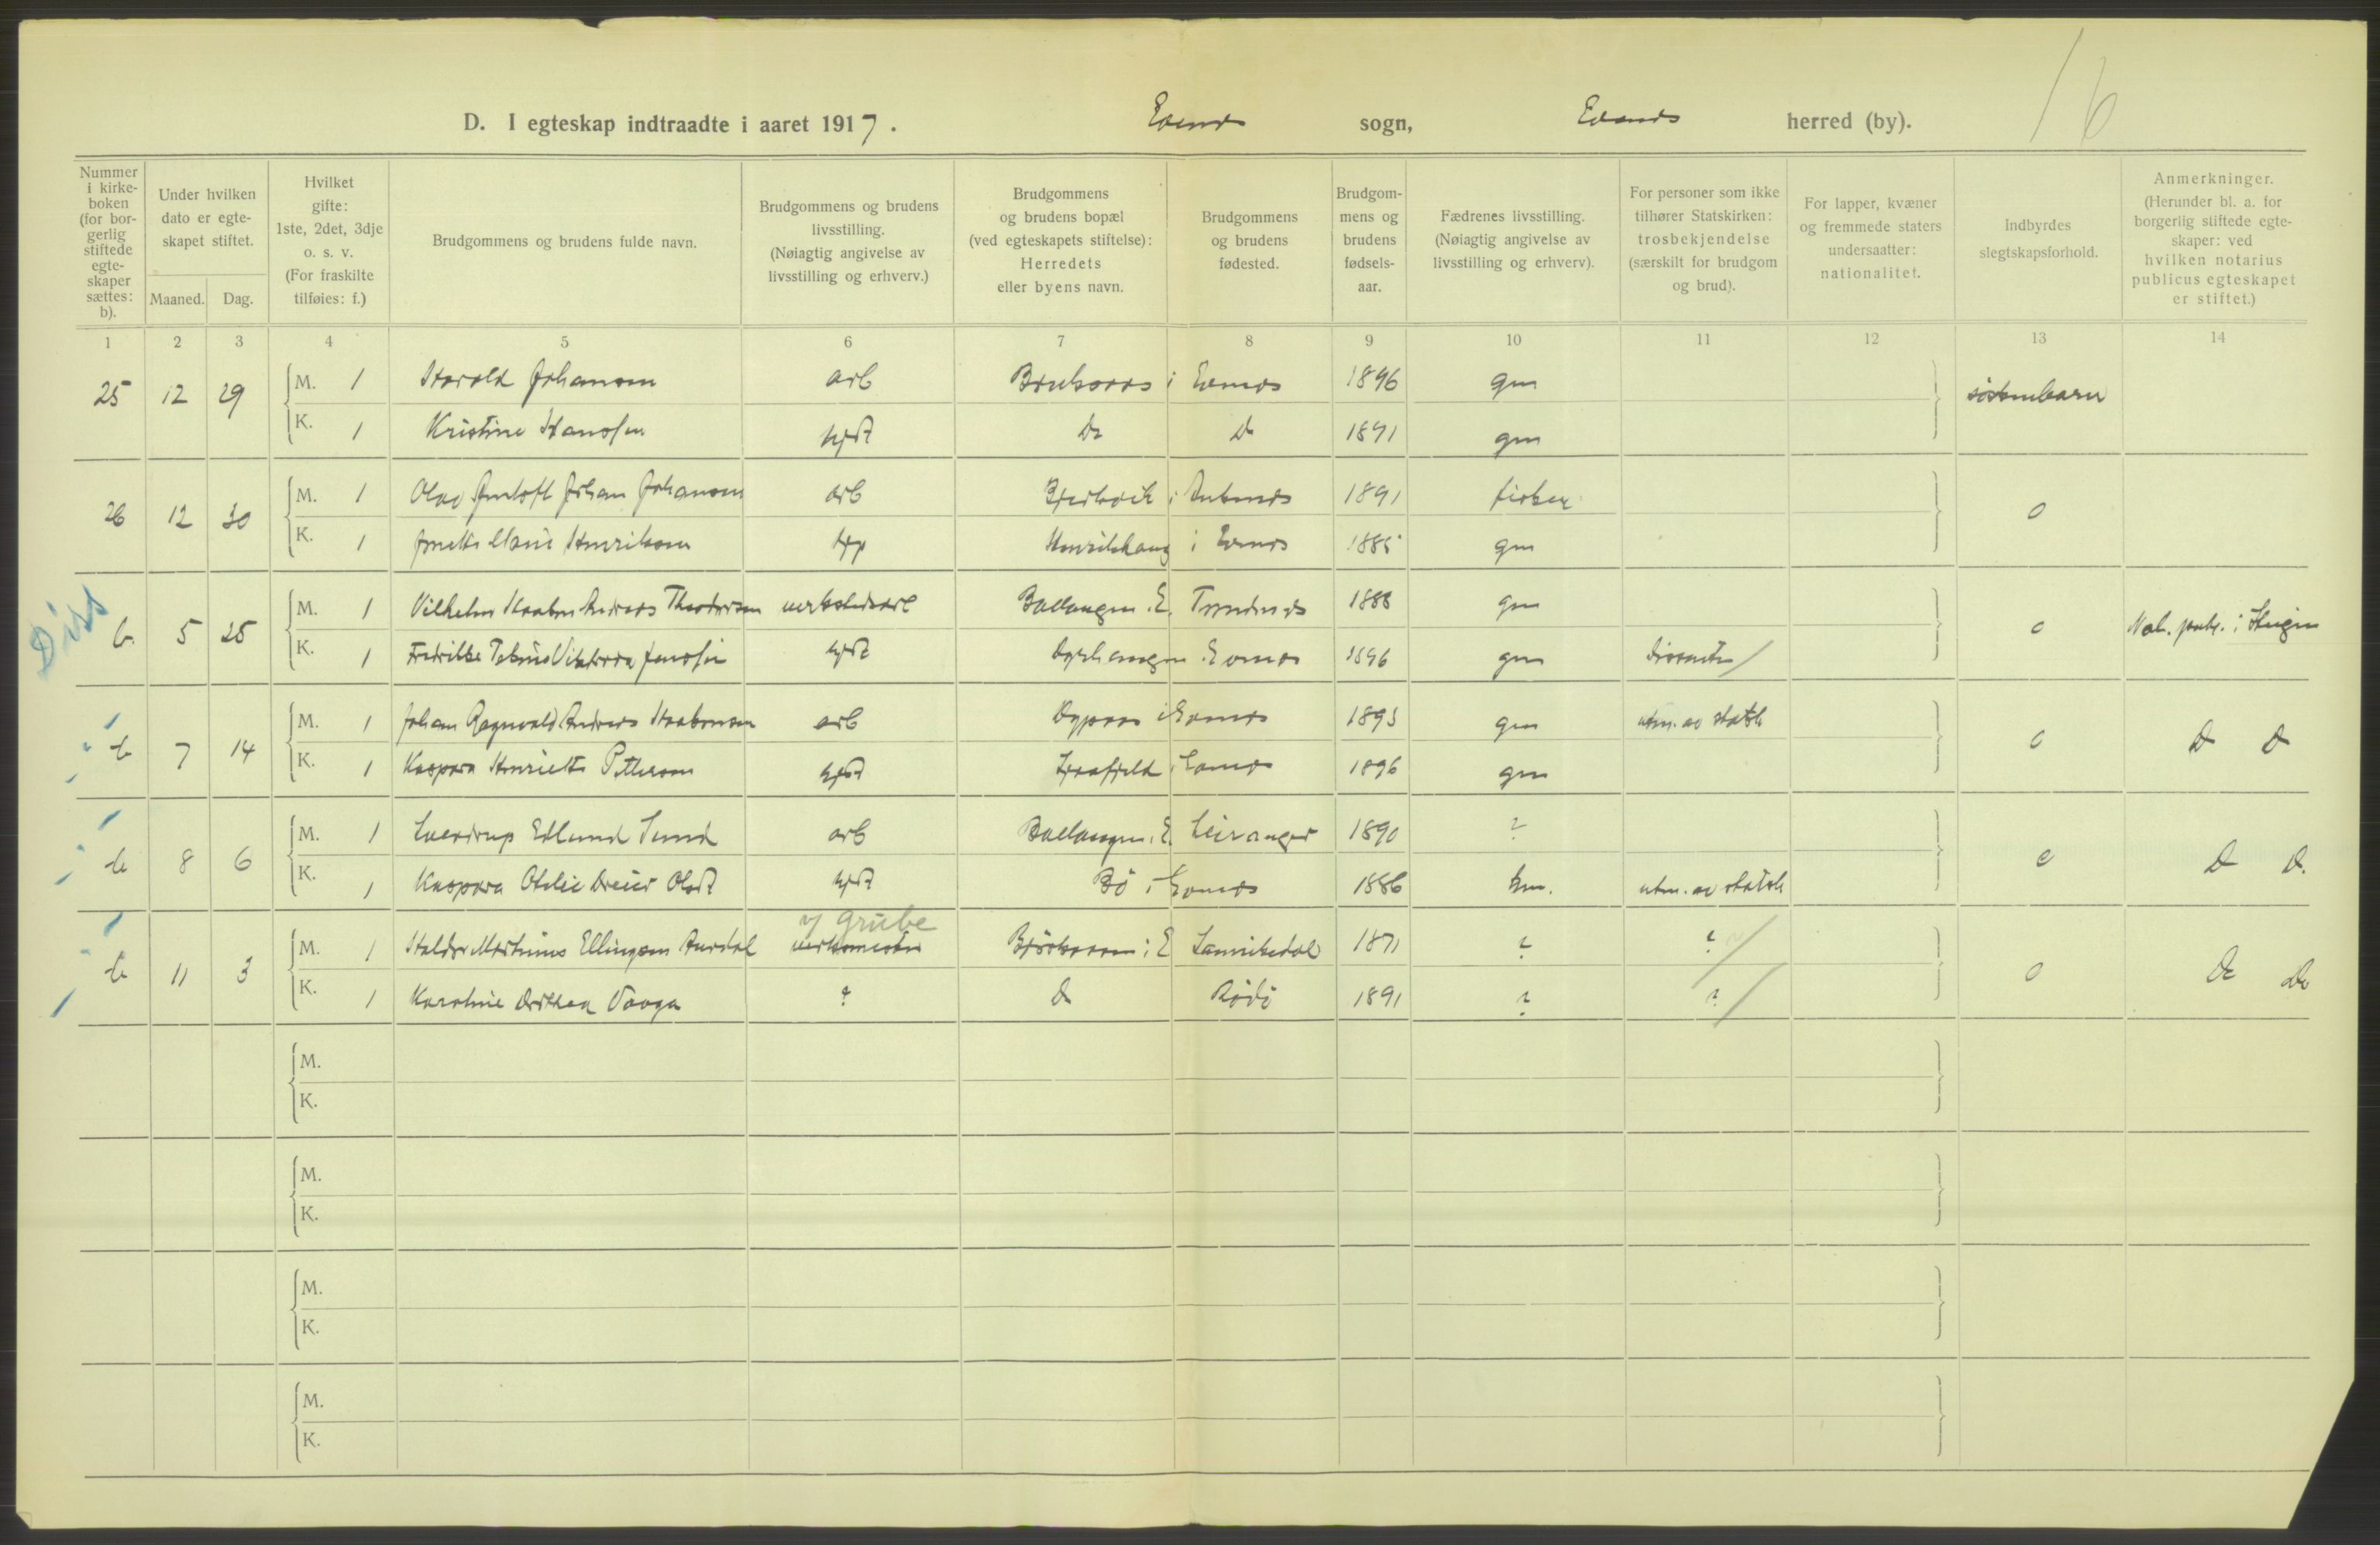 16
D. I egteskap indtraadte i aaret 1917. Evenes sogn, Evenes herred (by).
Nummer i kirkeboken (for borgerlig stiftede egteskaper sættes: b).
Under hvilken dato er egteskapet stiftet.
Maaned. Dag.
Hvilket gifte: 1ste, 2det, 3dje o. s. v. (For fraskilte tilføies: f.)
Brudgommens og brudens fulde navn.
Brudgommens og brudens livsstilling. (Nøiagtig angivelse av livsstilling og erhverv.)
Brudgommens og brudens bopæl (ved egteskapets stiftelse): Herredets eller byens navn.
Brudgommens og brudens fødested.
Brudgommens og brudens fødselsaar.
Fædrenes livsstilling. (Nøiagtig angivelse av livsstilling og erhverv).
For personer som ikke tilhører Statskirken: trosbekjendelse (særskilt for brudgom og brud).
For lapper, kvæner og fremmede staters undersaatter: nationalitet.
Indbyrdes slegtskapsforhold.
Anmerkninger. (Herunder bl. a. for borgerlig stiftede egteskaper: ved hvilken notarius publicus egteskapet er stiftet.)
1 2 3 4 5 6 7 8 9 10 11 12 13 14
25 12 29 M. 1 Harald Johansen arb i Evenes 1896 gm søskenbarn
K. 1 Kristine Hansen Do Do 1891 gm
26 12 30 M. 1 Olav Johan Johansen arb i 1891 fisker 0
K. 1 Marie Henriksen Henrikhaug i Evenes 1885 gm
Diss
b. 5 25 M. 1 Vilhelm Andreas Theodorsen verkstedsarb Ballangen. E. Trondenes 1888 gm 0 Not. publ. i
K. 1 Fredrikke Viktoria Jensen Evenes 1896 gm dissenter
b 7 14 M. 1 Johan Ragnvald Andreas arb i Evenes 1893 gm utm. av statsk 0 D D
K. 1 Kaspara Henriette Pettersen i Evenes 1896 gm
b 8 6 M. 1 Edlund Sund arb Ballangen. E Leiranger 1890 ? 0 D D.
K. 1 Kaspara Otelie Bø i Evenes 1886 km. utm. av statsk
v/ grube
b 11 3 M. 1 Haldor Martinius Ellingsen Aurdal verksmester i E Sannikedal 1871 ? ? 0 Do Do
K. 1 Karoline Dorthea Vaaga ? D Rødø 1891 ? ?
M.
K.
M.
K.
M.
K.
M.
K.